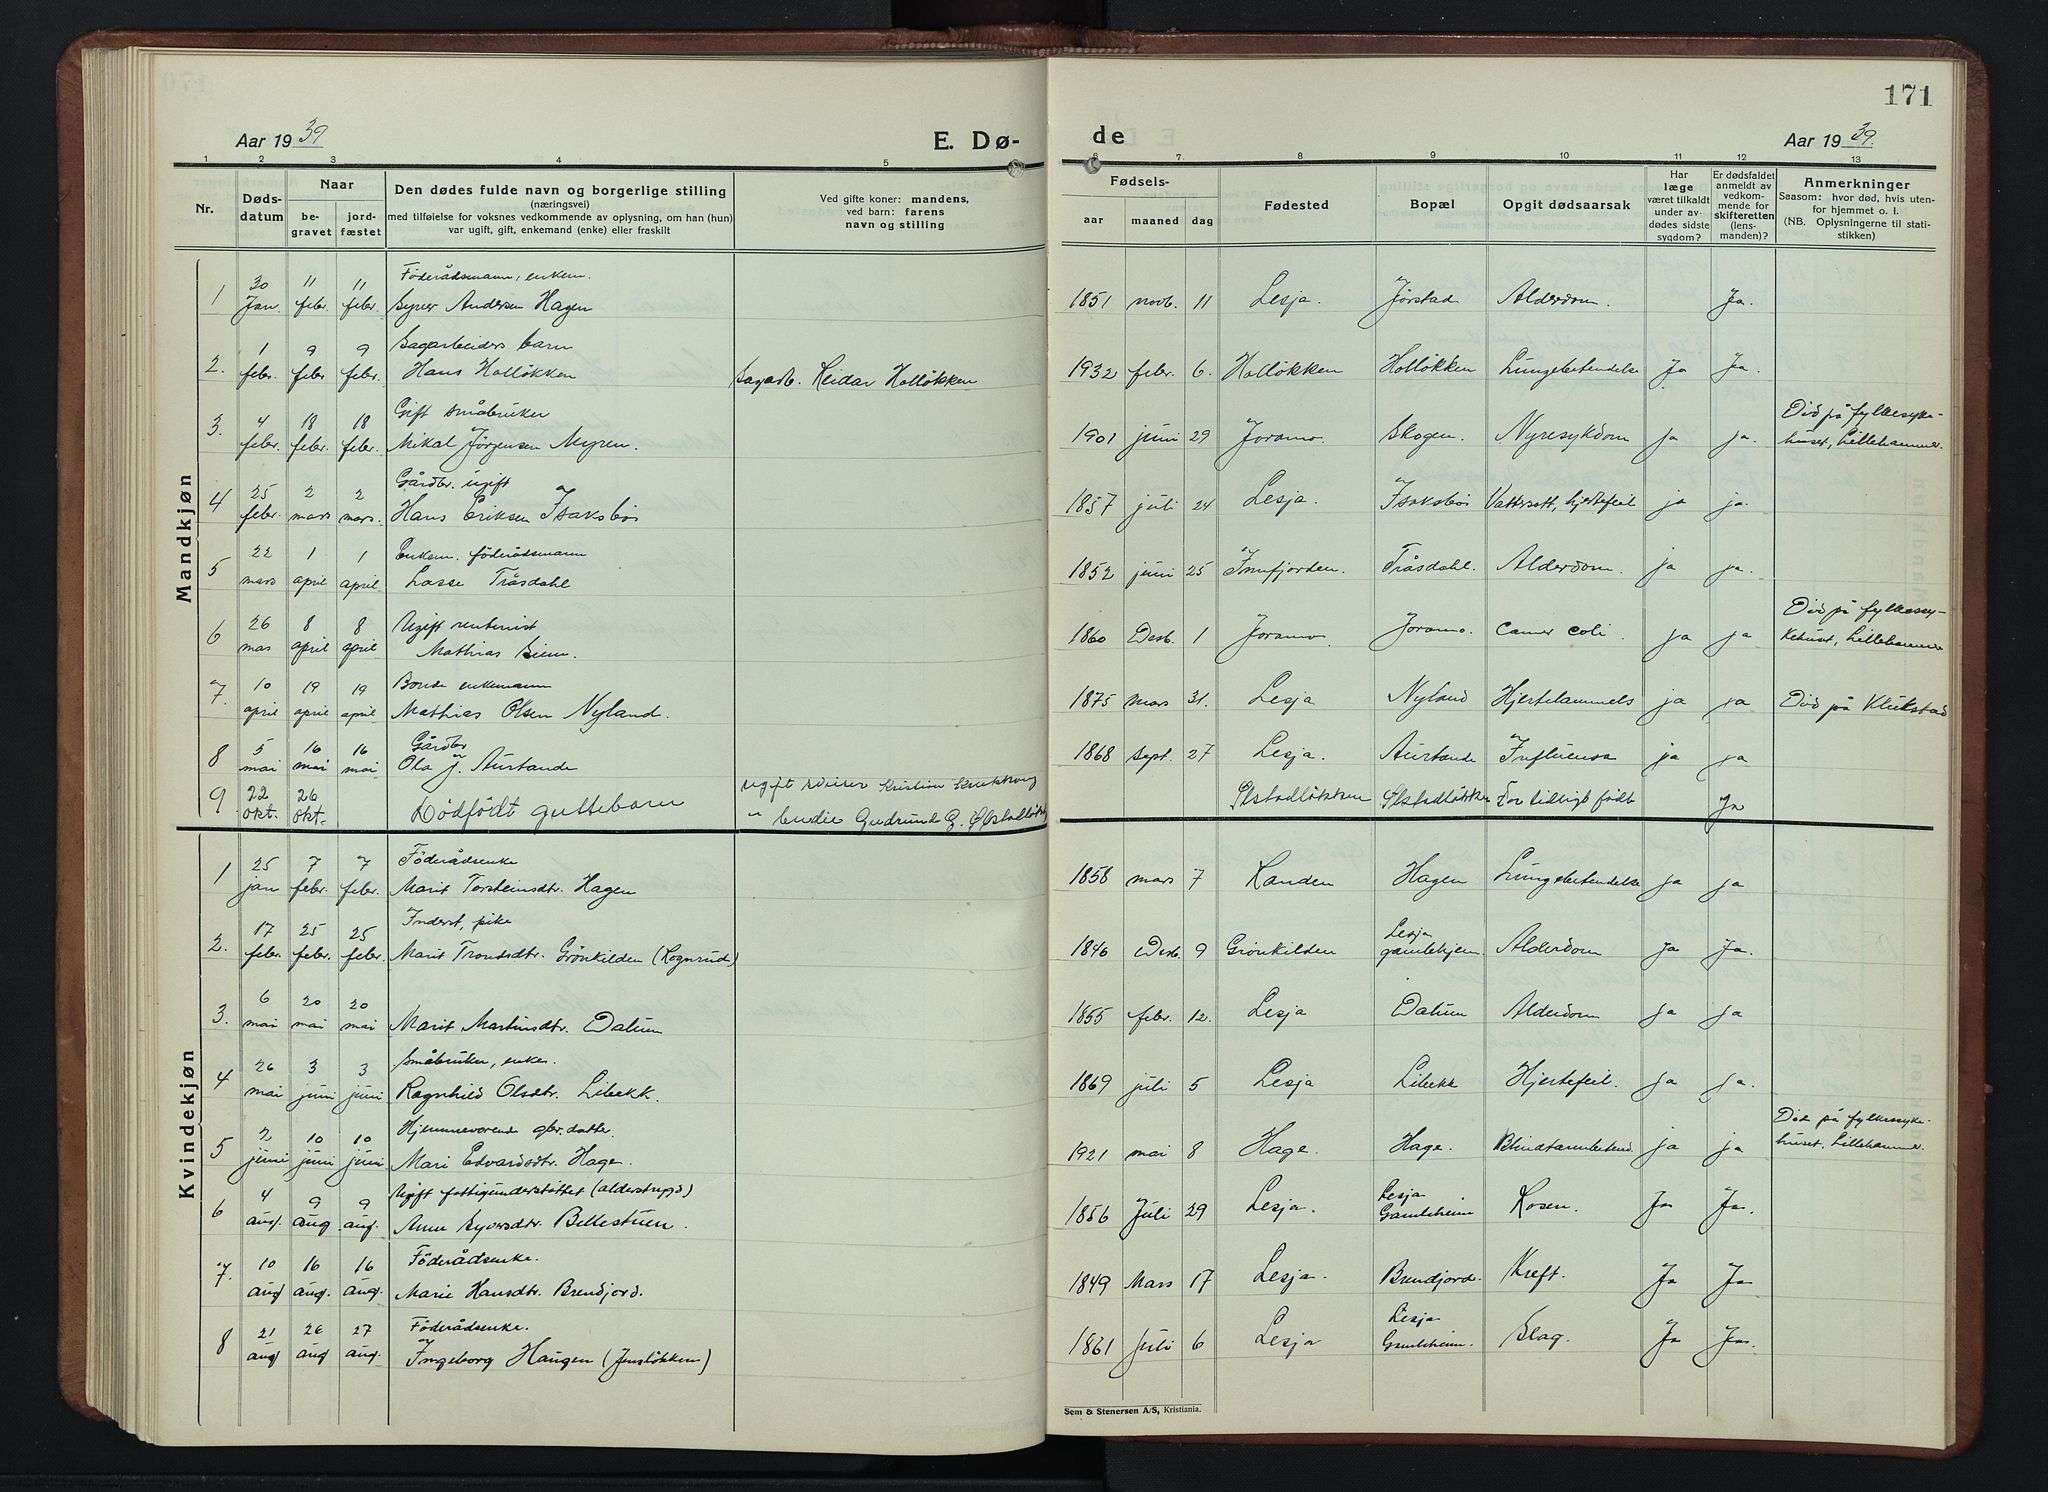 171
Aar 1939
E. Dø-
de
Aar 1939.
1 2 3 4 5 6 7 8 9 10 11 12 13
Nr.
Døds-
datum
Naar
be-
gravet
jord-
fæstet
Den dødes fulde navn og borgerlige stilling
(næringsvei)
med tilføielse for voksnes vedkommende av oplysning, om han (hun)
var ugift, gift, enkemand (enke) eller fraskilt
Ved gifte koner: mandens,
ved barn: farens
navn og stilling
Fødsels-
aar maaned dag
Fødested
Bopæl
Opgit dødsaarsak
Har
læge
været tilkaldt
under av-
dødes sidste
sygdom?
Er dødsfaldet
anmeldt av
vedkom-
mende for
skifteretten
(lens-
manden)?
Anmerkninger
Saasom: hvor død, hvis uten-
for hjemmet o. l.
(NB. Oplysningerne til stati-
stikken)
Mandkjøn
30 11 11 Föderådsmann, enkem.
1 Jan. febr. febr. Syver Andersen Hagen 1851 novb. 11 Lesja. Jörstad Alderdom. Ja.
1 9 9 Sagarbeiders barn
2. febr. febr febr. Hans Holløkken Sagarb. Reidar Holløkken 1932 febr. 6. Holløkken Holløkken Lungebetendelse Ja Ja.
4 18 18 Gift småbruker Död på fylkessyke-
3. febr. febr. febr. Mikal Jörgensen Myren. 1901 juni 29 Joramo. Skogen. Nyresykdom ja ja. huset, Lillehammer.
25 2 2 Gårdbr. ugift
4 febr. mars mars. Hans Eriksen Isaksbö 1857 juli 24 Lesja. Isaksbö Vattersott, hjertefeil ja ja.
22 1 1 Enkem. föderådsmann
5 mars april april Lasse Tråsdahl 1852 juni 25 Innfjorden. Tråsdahl. Alderdom. ja ja.
26 8 8 Ugift rentenist Död på fylkessy-
6 mas april april Mathias Bjem. 1860 Desb. 1 Joramo. Joramo. Cancer coli. ja ja kehuset, Lillehammer
10 19 19 Bonde enkemann
7. april april april Mathias Olsen Nyland. 1875 mars 31. Lesja Nyland Hjertelammels ja ja Död på Klukstad
5 16 16 Gårdbr
8 mai mai mai Ola J. Aurlande 1868 sept. 27 Lesja. Aurlande Influensa ja ja
22 26 ugift Kristian
9. okt. okt. Dödfödt guttebarn Gudrun G. Ølstadløkken Ølstadløkken For tidligt födt Ja
Kvindekjøn
25 7 7 Föderådsenke
1 jan febr. febr. Marit Torsteinsdtr. Hagen 1858 mars 7 Randen Hagen Lungebetendelse ja ja
17 25 25 Inderst, pike Lesja
2. febr. febr. febr. Marit Trondsdtr. Grönkilden (Rognrud) 1846 Desb. 9 Grönkilden gamlehjem. Alderdom Ja Ja.
6 20 20
3. mai mai mai Marit Martinsdtr. Dalum 1855 febr. 12. Lesja Dalum Alderdom Ja Ja
26 3 3 Småbruker, enke.
4 mai juni juni Ragnhild Olsdtr. Libekk. 1869 juli 5 Lesja Libekk Hjertefeil. ja ja.
2 10 10 Hjemmeværende gbr. datter Död på fylkessyke-
5 juni juni juni Mari Edvardsdtr. Hage. 1921 mai 8 Hage. Hage. Blindtarmbetend. ja ja huset, Lillehammer.
4 9 9 Ugift fattigunderstöttet (alderstrygd) Lesja
6 aug. aug aug. Anne Syversdtr. Bellestuen. 1856 Juli 29 Lesja. Gamleheim Rosen. Ja Ja.
10 16 16 Föderådsenke.
7. aug aug. aug. Marie Hansdtr. Brendjord. 1849 Mars 17 Lesja. Brendjord. Kreft. Ja Ja
21 26 27 Föderådsenke. Lesja
8 aug aug aug. Ingeborg Haugen (Jensløkken) 1861 Juli 6 Lesja Gamleheim. Slag. Ja Ja.
Sem & Stenersen A/S, Kristiania.